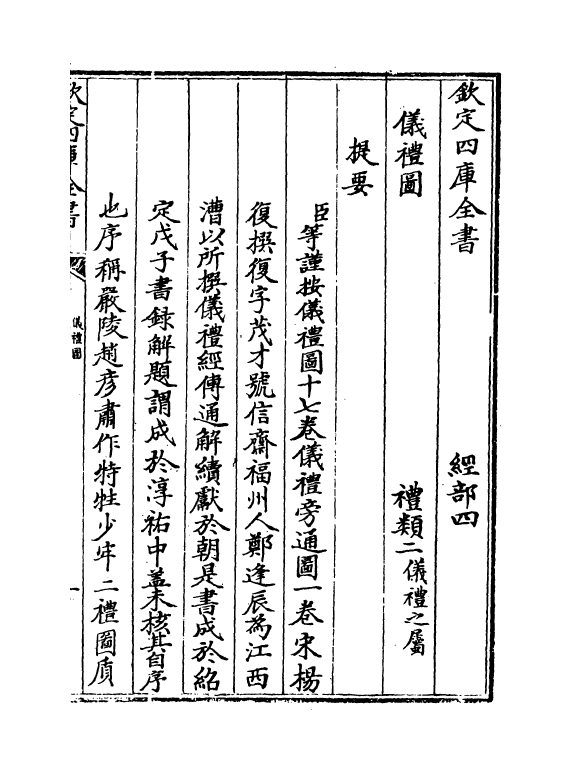 欽定四庫全書 經部四
儀禮圖 禮類二儀禮之屬
提要
臣等謹按儀禮圖十七卷儀禮旁通圖一卷宋楊
復撰復字茂才號信齋福州人鄭逢辰為江西
漕以所撰儀禮經傳通解續獻於朝是書成於紹
定戊子書録解題謂成於淳祐中蓋未核其自序
也序稱嚴陵趙彦肅作特牲少牢二禮圖質
欽定四庫全書
儀禮圖
一